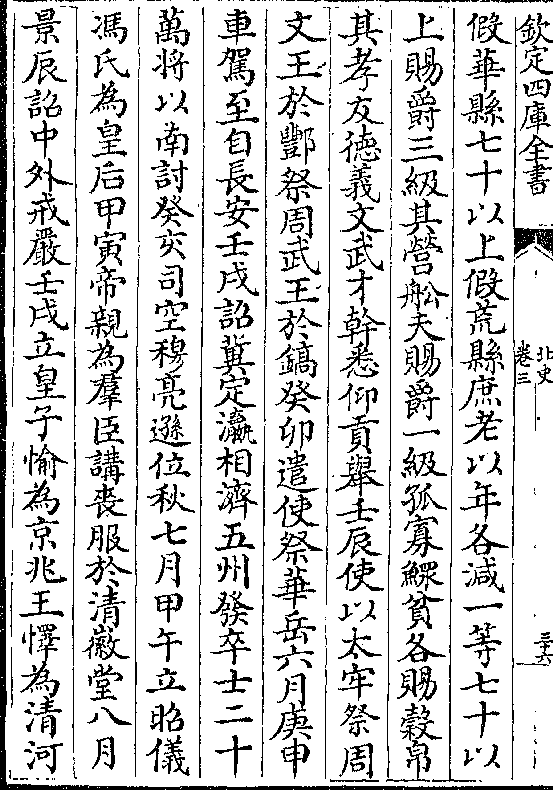 欽定四庫全書
北史
卷三
三十六
假華縣七十以上假荒縣庶老以年各減一等七十以
上賜爵三級其營船夫賜爵一級孤寡鰥貧各賜穀帛
其孝友德義文武才幹悉仰貢舉壬辰使以太牢祭周
文王於酆祭周武王於鎬癸卯遣使祭華岳六月庚申
車駕至自長安壬戌詔冀定瀛相濟五州發卒士二十
萬將以南討癸亥司空穆亮遜位秋七月甲午立昭儀
馮氏為皇后甲寅帝親為羣臣講喪服於清徽堂八月
景辰詔中外戒嚴壬戌立皇子愉為京兆王懌為清河